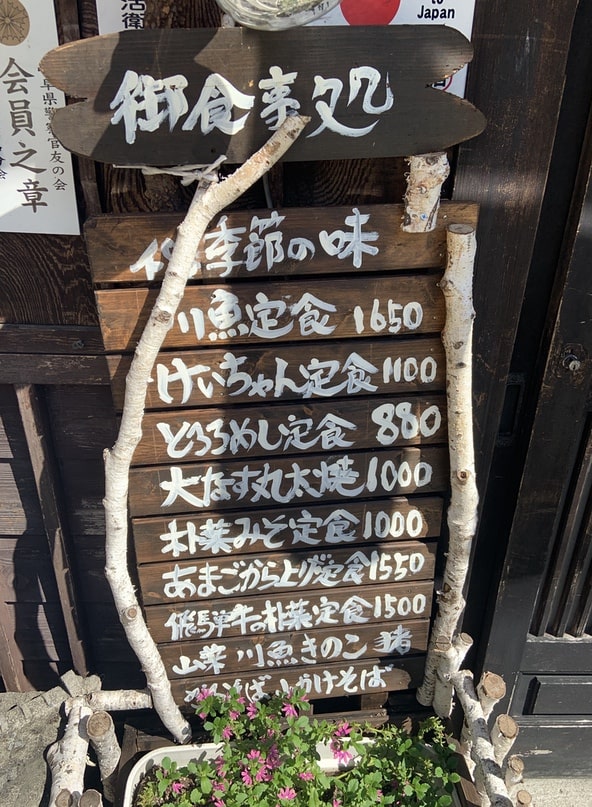 活衛
to
Japan
会員之章
御食事処
季節の味
川魚定食 1650
けいちゃん定食 1100
とろろめし定食 880
大なす丸太焼 1000
朴葉みそ定食 1000
あまごから上げ定食 1550
飛騨牛の朴葉定食 1500
山菜 川魚きのこ 猪
そば 山かけそば